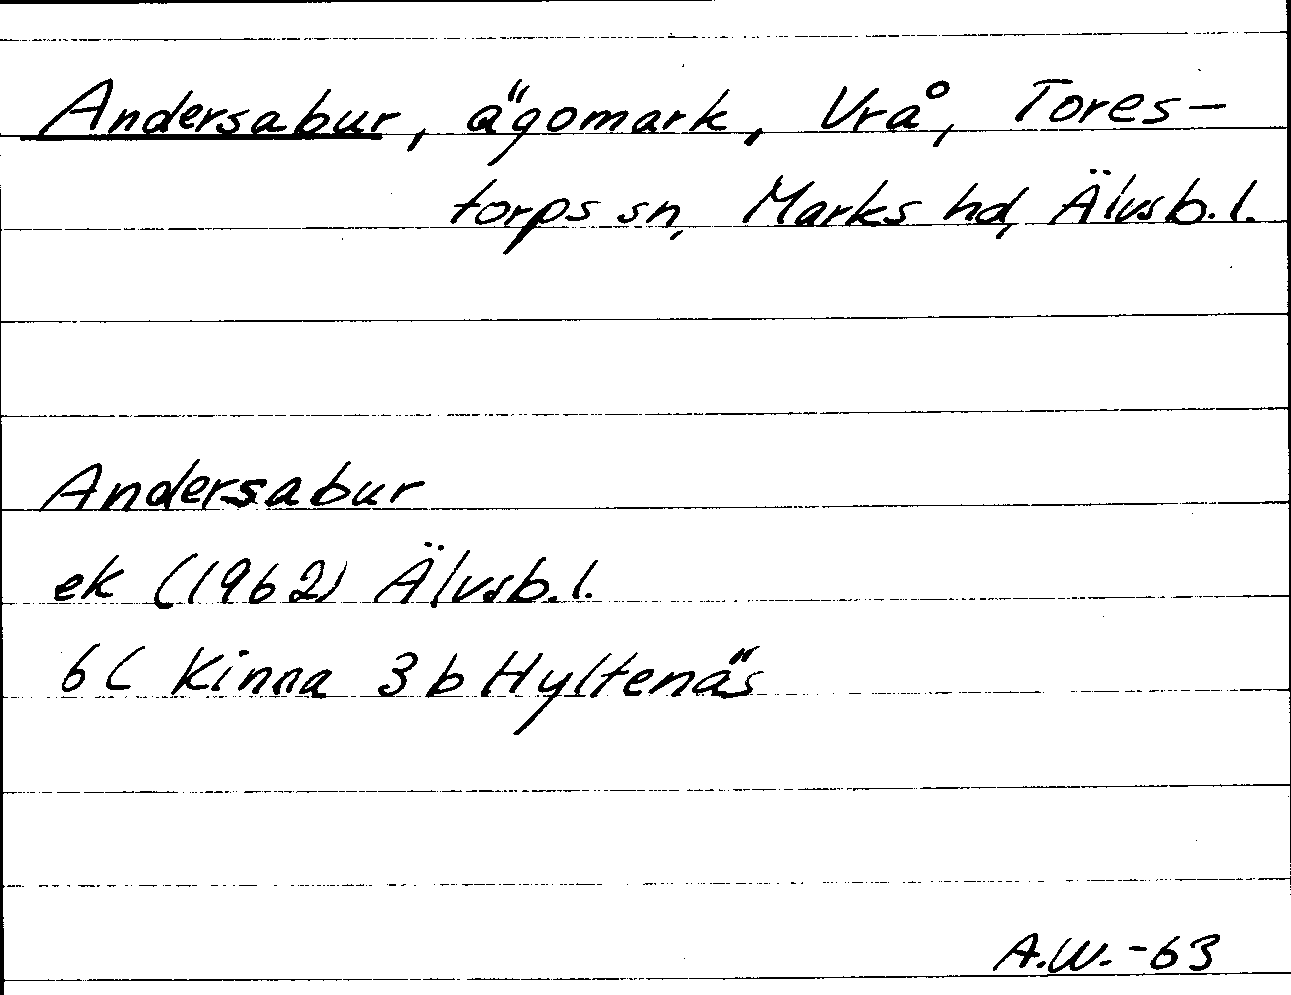 Andersabur, ägomark, Vrå, Tores-
torps sn, Marks hd, Älvsb.l.
Andersabur
ek (1962) Älvsb.l.
6C Kinna 3b Hyltenäs
A.W.-63